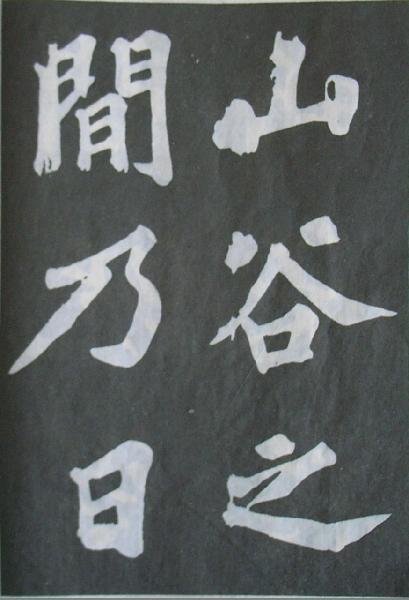 山谷之
間乃日